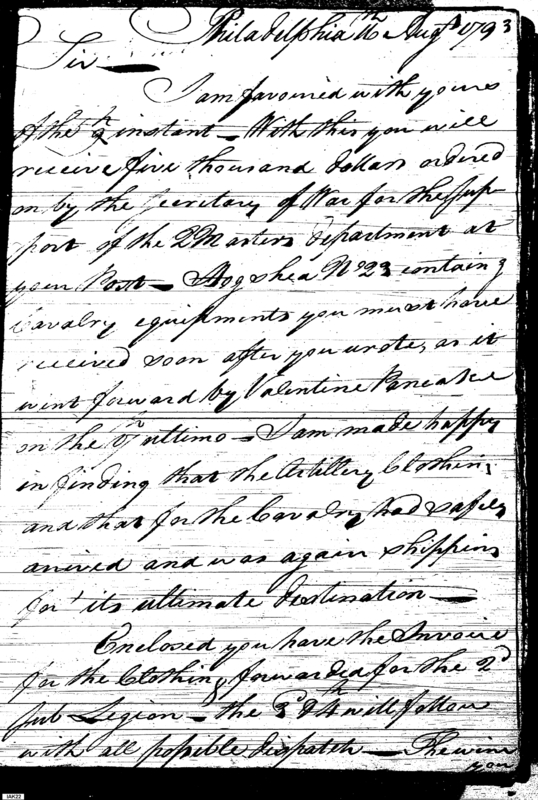 Philadelphia Augt 1793
Sir —
I am favoured with yours
of the instant — With this you will
receive five thousand dollars ordered
on by the Secretary of War for the sup-
port of the QMasters department at
your Post — Hogshead No 23 containg
Cavalry equipments you must have
received soon after you wrote, as it
went forward by Valentine Pancake
on the ultimo — I am made happy
in finding that the Artillery Clothing
and that for the Cavalry had safely
arrived and was again shipping
for its ultimate destination —
Enclosed you have the Invoice
for the Clothing forwarded for the 2d
Sub Legion — the 3d & 4th will follow
with all possible dispatch —
you
IAK22